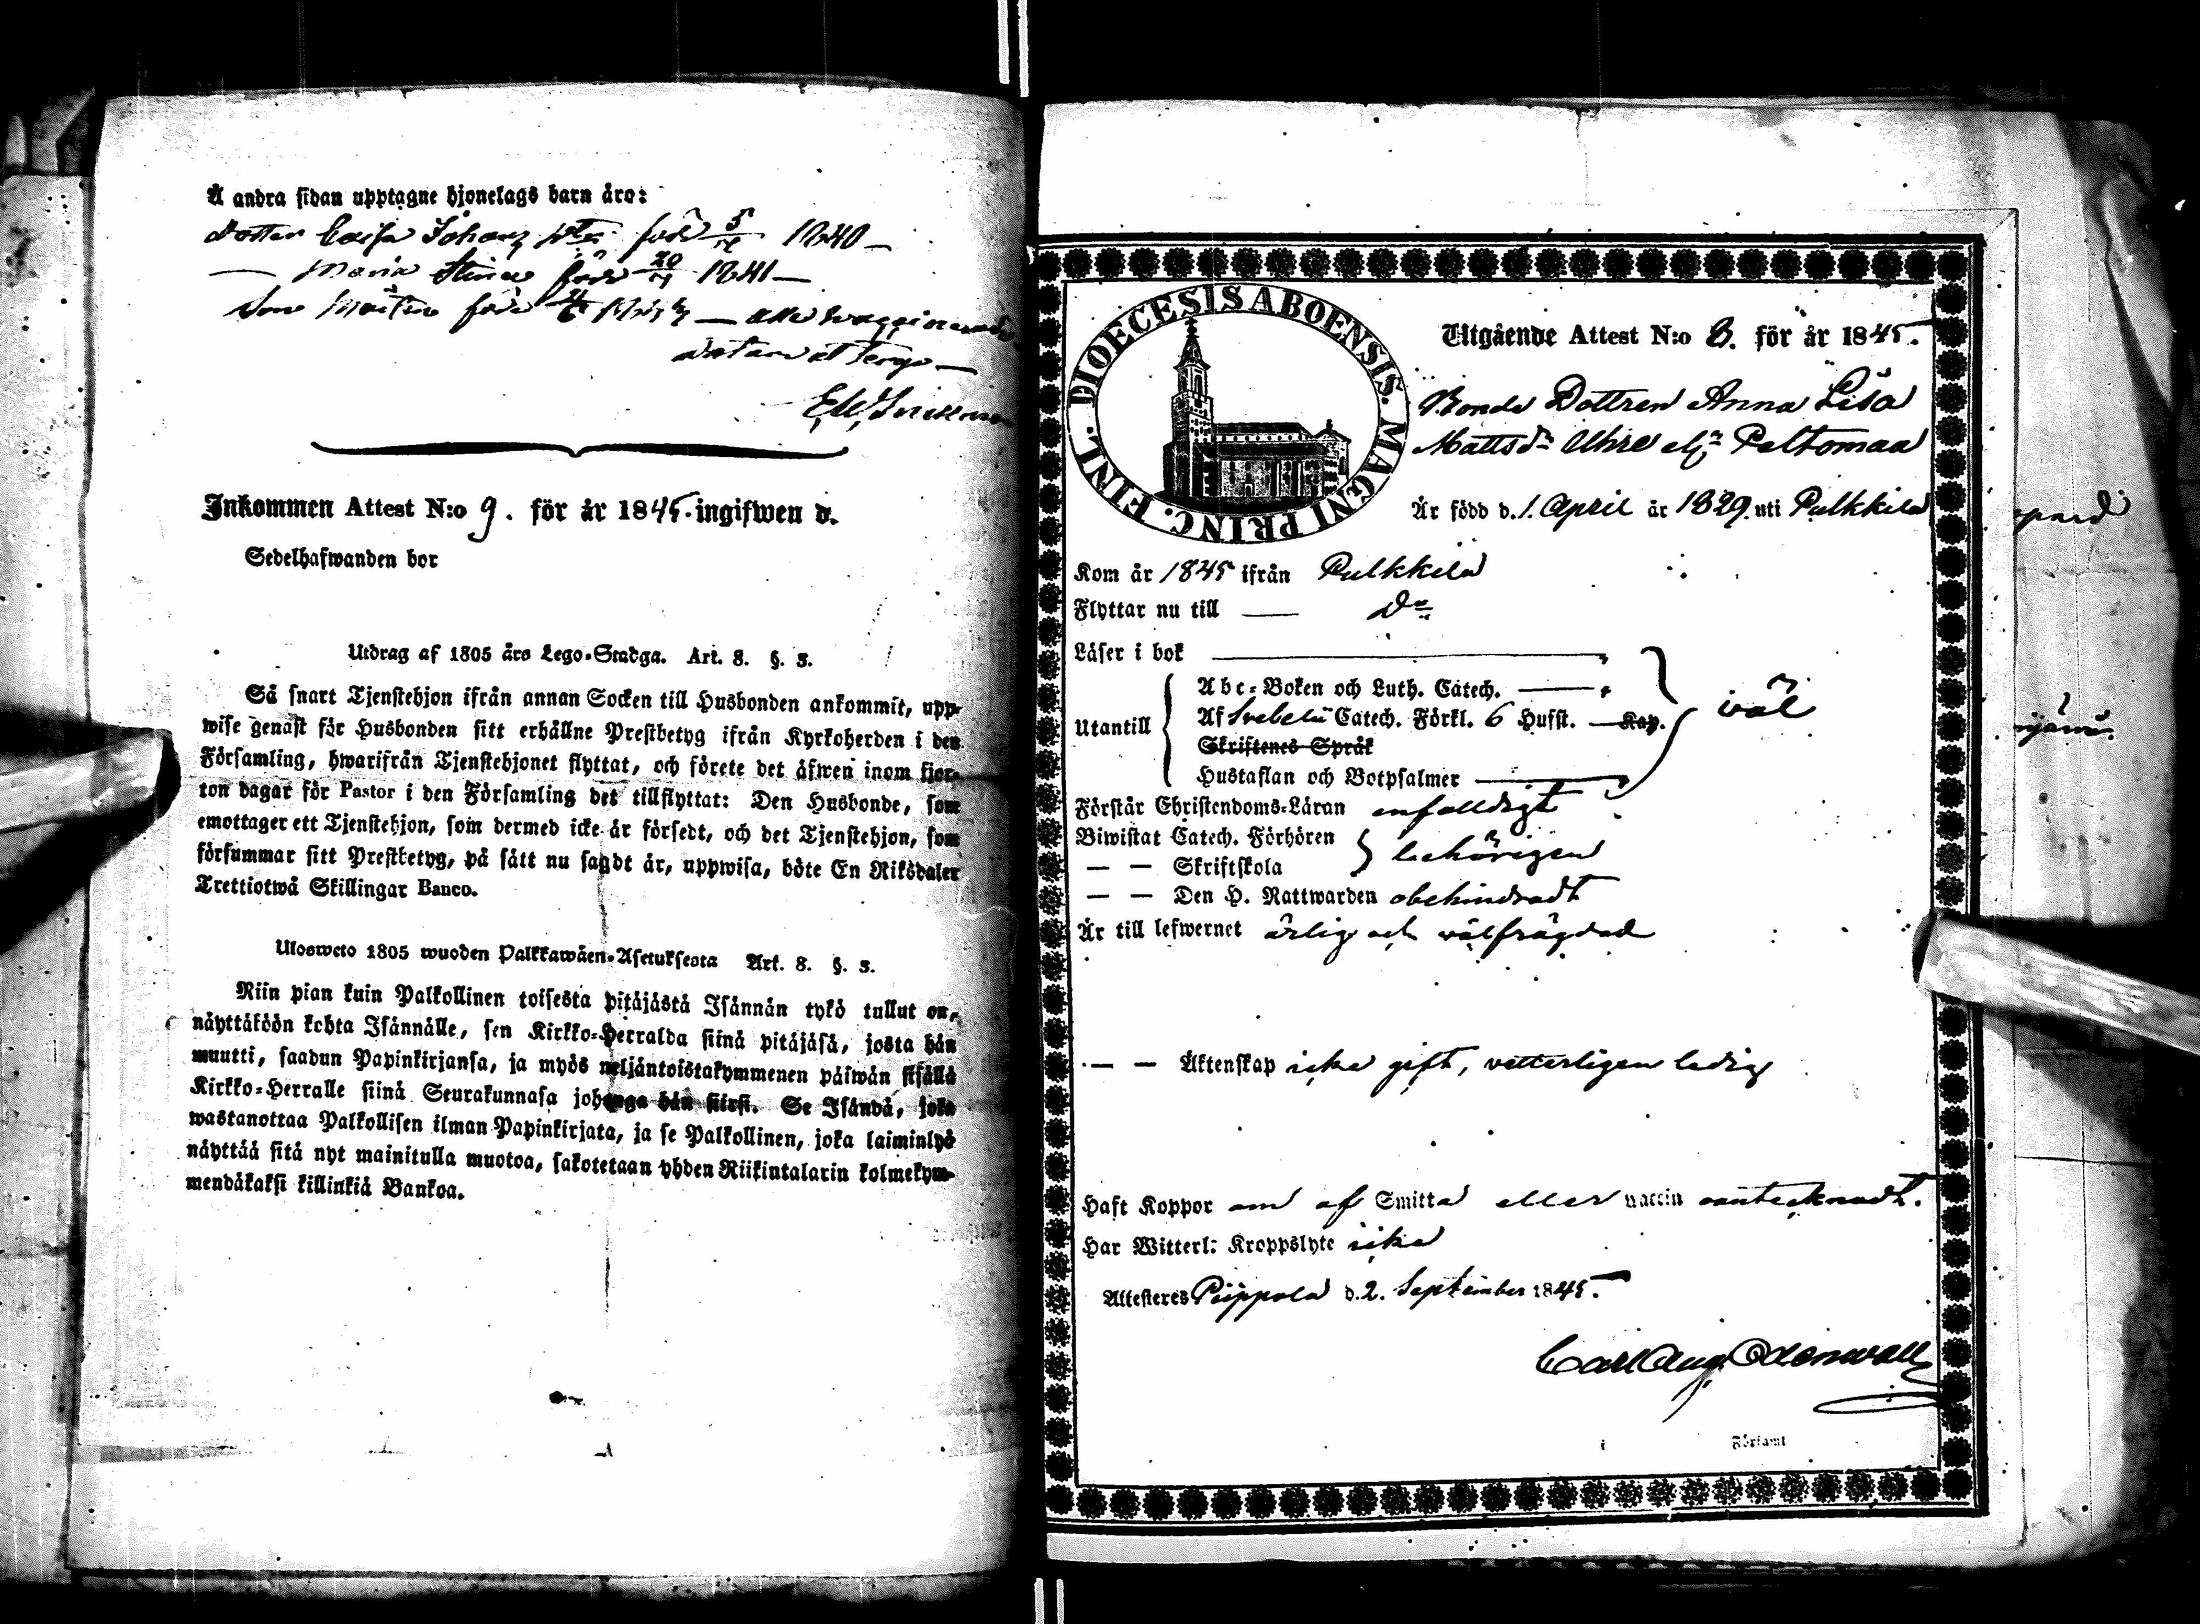 Å andra sidan upptagne hjonelags barn äro:
Dotter Caisa Johana född 5/ 1840 —
— Maria Stina född 20/ 1841 —
Son född — alla vaccinerade
datum et tergo —
E. W.
Inkommen Attest N:o 9. för år 1845. ingifwen d.
Sedelhafwanden bor
Utdrag af 1805 års Lego-Stadga. Art. 8. §. 3.
Så snart Tjenstehjon ifrån annan Socken till Husbonden ankommit, upp-
wise genast för Husbonden sitt erhållne Prestbetyg ifrån Kyrkoherden i den
Församling, hwarifrån Tjenstehjonet flyttat, och förete det äfwen inom fjor-
ton dagar för Pastor i den Församling det tillflyttat: Den Husbonde, som
emottager ett Tjenstehjon, som dermed icke är försedt, och det Tjenstehjon, som
försummar sitt Prestbetyg, på sätt nu sagdt är, uppwisa, böte En Riksdaler
Trettiotwå Skillingar Banco.
Ulosweto 1805 wuoden Palkkawäen-Asetuksesta Art. 8. §. 3.
Niin pian kuin Palkollinen toisesta pitäjästä Isännän tykö tullut on,
näyttäköön kohta Isännälle, sen Kirkko-Herralda siinä pitäjäsä, josta hän
muutti, saadun Papinkirjansa, ja myös neljäntoistakymmenen päiwän sisällä
Kirkko-Herralle siinä Seurakunnasa johonga hän siirsi. Se Isändä, joka
wastanottaa Palkollisen ilman Papinkirjata, ja se Palkollinen, joka laiminlyö
näyttää sitä nyt mainitulla muotoa, sakotetaan yhden Riikintalarin kolmekym-
mendäkaksi killinkiä Bankoa.
DIOECESIS ABOENSIS. MAGNI PRINC. FINL.
Utgående Attest N:o 8. för år 1845.
Bonde Dottren Anna Lisa
Mattsdr Uhre elr Peltomaa
Är född d. 1. April år 1829. uti Pulkkila
Kom år 1845 ifrån Pulkkila
Flyttar nu till — Do
Läser i bok
Utantill { Abc-Boken och Luth. Catech.
Af Svebelii Catech. Förkl. 6 Hufst. — Kap.
Skriftenes Språk
Hustaflan och Botpsalmer
väl
Förstår Christendoms-Läran enfalldigt
Biwistat Catech. Förhören
— — Skriftskola } behörigen
— — Den H. Nattwarden obehindradt
Är till lefwernet ärlig och välfrägdad
— — Äktenskap icke gift, vetterligen ledig
Haft Koppor om af Smitta eller vaccin oantecknadt.
Har Witterl: Kroppslyte icke
Attesteres Piippola d. 2. September 1845.
Carl Aug. Odenwall
i Församl